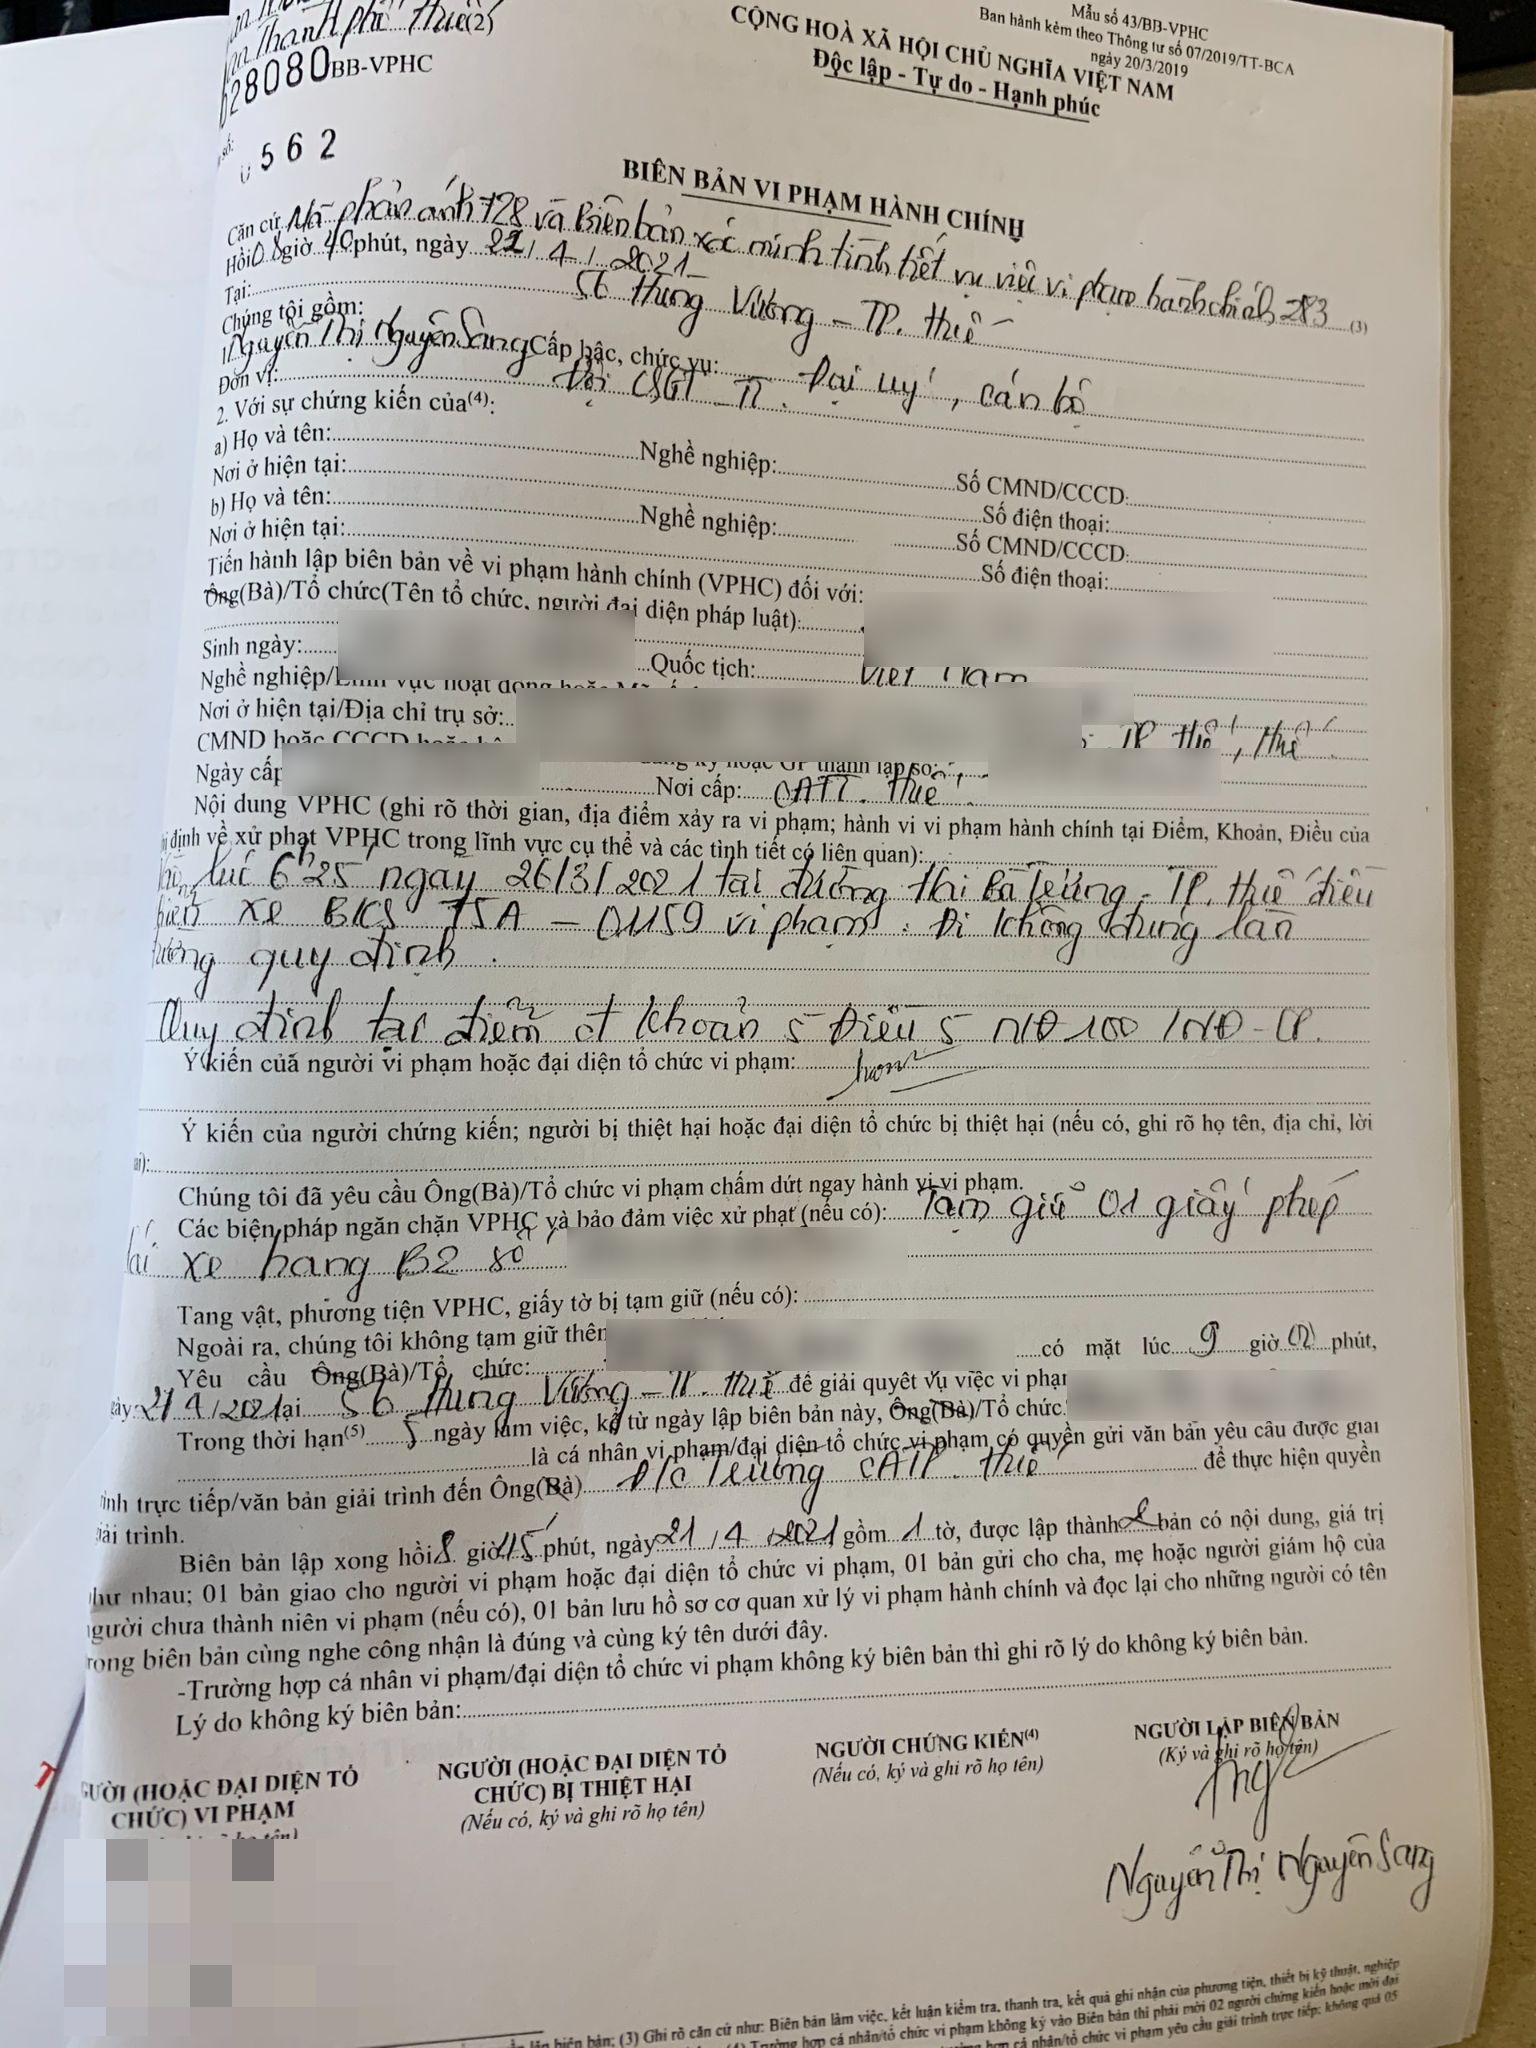 Thành phố Huế(2)
28080 BB-VPHC
562
Mẫu số 43/BB-VPHC
Ban hành kèm theo Thông tư số 07/2019/TT-BCA
ngày 20/3/2019
CỘNG HOÀ XÃ HỘI CHỦ NGHĨA VIỆT NAM
Độc lập - Tự do - Hạnh phúc
BIÊN BẢN VI PHẠM HÀNH CHÍNH
Căn cứ Mã phản ánh 728 và Biên bản xác minh tình tiết vụ việc vi phạm hành chính 283 (3)
Hồi 08 giờ 40 phút, ngày 21/4/2021
Tại: 56 Hùng Vương - TP. Huế
Chúng tôi gồm:
1. Nguyễn Thị Nguyên Sang Cấp bậc, chức vụ: Đại uý, cán bộ
Đơn vị: Đội CSGT TT.
2. Với sự chứng kiến của(4):
a) Họ và tên: Nghề nghiệp: Số CMND/CCCD:
Nơi ở hiện tại: Số điện thoại:
b) Họ và tên: Nghề nghiệp: Số CMND/CCCD:
Nơi ở hiện tại: Số điện thoại:
Tiến hành lập biên bản về vi phạm hành chính (VPHC) đối với:
Ông(Bà)/Tổ chức(Tên tổ chức, người đại diện pháp luật):
Sinh ngày: Quốc tịch: Việt Nam
Nghề nghiệp/Lĩnh vực hoạt động hoặc
Nơi ở hiện tại/Địa chỉ trụ sở: TP Huế, Huế.
CMND hoặc CCCD hoặc hoặc GP thành lập số:
Ngày cấp Nơi cấp: CATT. Huế.
Nội dung VPHC (ghi rõ thời gian, địa điểm xảy ra vi phạm; hành vi vi phạm hành chính tại Điểm, Khoản, Điều của
định về xử phạt VPHC trong lĩnh vực cụ thể và các tình tiết có liên quan):
lúc 6h25' ngày 26/3/2021 tại đường Hai Bà Trưng - TP. Huế điều
xe BKS 75A - 01159 vi phạm: Đi không đúng làn
quy định.
Quy định tại điểm đ khoản 5 Điều 5 NĐ 100/NĐ-CP.
Ý kiến của người vi phạm hoặc đại diện tổ chức vi phạm:
Ý kiến của người chứng kiến; người bị thiệt hại hoặc đại diện tổ chức bị thiệt hại (nếu có, ghi rõ họ tên, địa chỉ, lời
Chúng tôi đã yêu cầu Ông(Bà)/Tổ chức vi phạm chấm dứt ngay hành vi vi phạm.
Các biện pháp ngăn chặn VPHC và bảo đảm việc xử phạt (nếu có): Tạm giữ 01 giấy phép
lái xe hạng B2 số
Tang vật, phương tiện VPHC, giấy tờ bị tạm giữ (nếu có):
Ngoài ra, chúng tôi không tạm giữ thêm
Yêu cầu Ông(Bà)/Tổ chức: có mặt lúc 9 giờ phút,
21/4/2021 tại 56 Hùng Vương - TP. Huế để giải quyết vụ việc vi phạm
Trong thời hạn(5) 5 ngày làm việc, kể từ ngày lập biên bản này, Ông(Bà)/Tổ chức
là cá nhân vi phạm/đại diện tổ chức vi phạm có quyền gửi văn bản yêu cầu được giải
trực tiếp/văn bản giải trình đến Ông(Bà) Đ/c Trưởng CATP Huế để thực hiện quyền
giải trình.
Biên bản lập xong hồi 8 giờ 45 phút, ngày 21/4/2021 gồm 1 tờ, được lập thành 2 bản có nội dung, giá trị
như nhau; 01 bản giao cho người vi phạm hoặc đại diện tổ chức vi phạm, 01 bản gửi cho cha, mẹ hoặc người giám hộ của
người chưa thành niên vi phạm (nếu có), 01 bản lưu hồ sơ cơ quan xử lý vi phạm hành chính và đọc lại cho những người có tên
trong biên bản cùng nghe công nhận là đúng và cùng ký tên dưới đây.
-Trường hợp cá nhân vi phạm/đại diện tổ chức vi phạm không ký biên bản thì ghi rõ lý do không ký biên bản.
Lý do không ký biên bản:
NGƯỜI (HOẶC ĐẠI DIỆN TỔ CHỨC) VI PHẠM
NGƯỜI (HOẶC ĐẠI DIỆN TỔ CHỨC) BỊ THIỆT HẠI
(Nếu có, ký và ghi rõ họ tên)
NGƯỜI CHỨNG KIẾN(4)
(Nếu có, ký và ghi rõ họ tên)
NGƯỜI LẬP BIÊN BẢN
(Ký và ghi rõ họ tên)
Nguyễn Thị Nguyên Sang
lập biên bản; (3) Ghi rõ căn cứ như: Biên bản làm việc, kết luận kiểm tra, thanh tra, kết quả ghi nhận của phương tiện, thiết bị kỹ thuật, nghiệp
Trường hợp cá nhân/tổ chức vi phạm không ký vào Biên bản thì phải mời 02 người chứng kiến hoặc mời đại
hợp cá nhân/tổ chức vi phạm yêu cầu giải trình trực tiếp: không quá 05